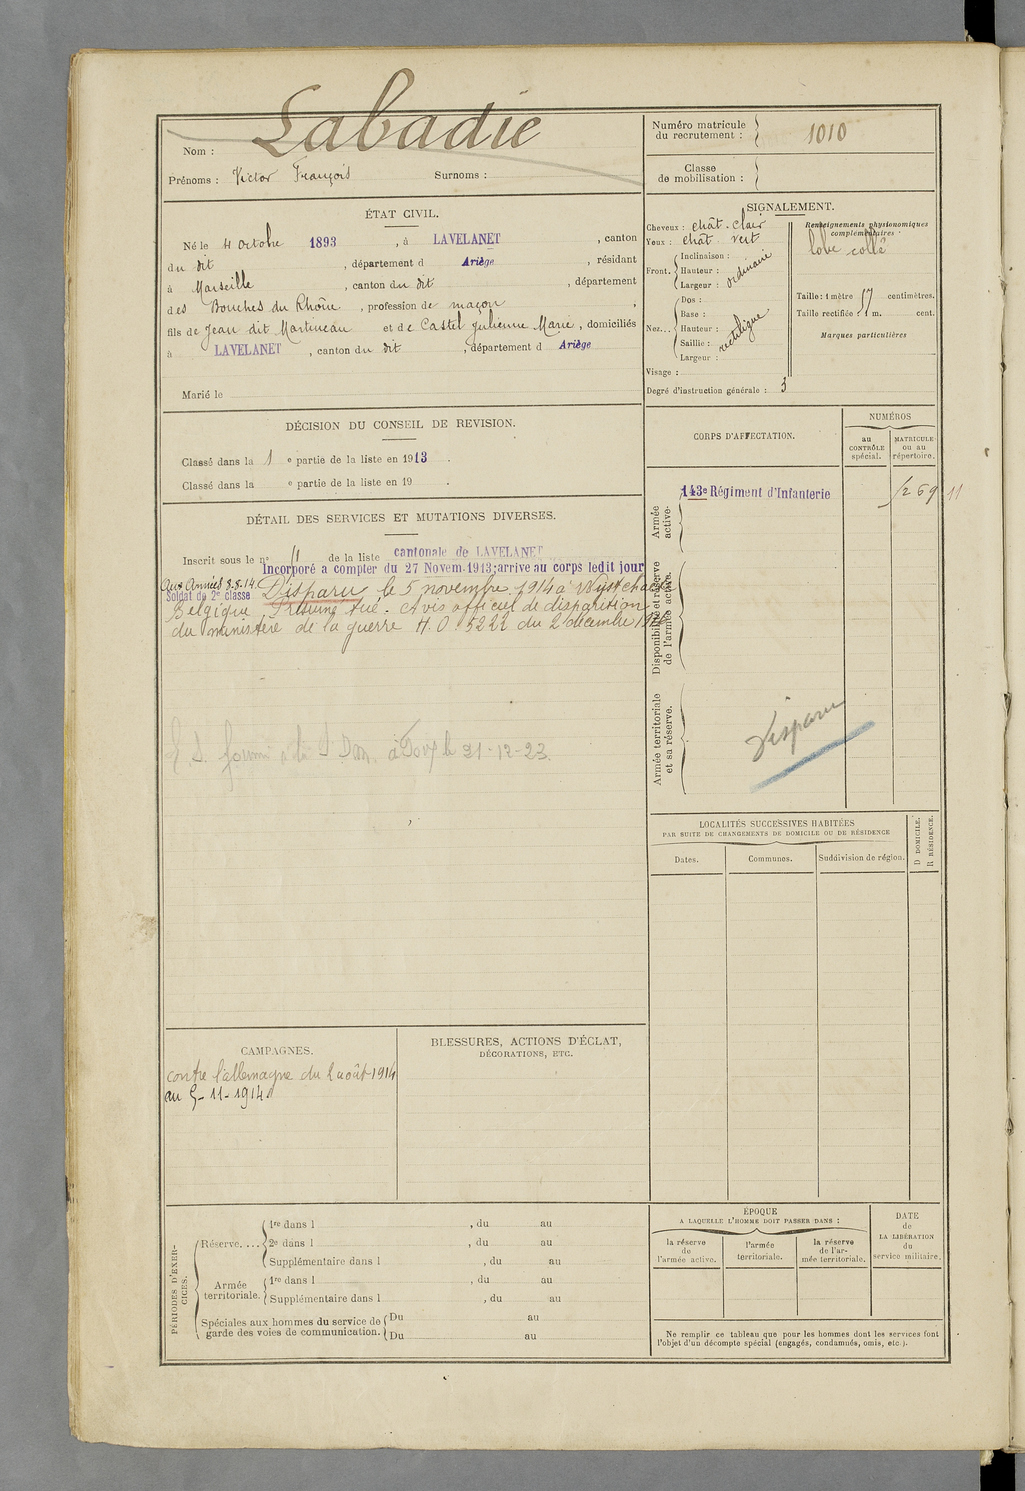 Nom : Labadie
Prénoms : Victor François Surnoms :
Numéro matricule
du recrutement : 1010
Classe
de mobilisation :
ÉTAT CIVIL.
Né le 4 octobre 1893, à LAVELANET, canton
du dit, département d Ariège, résidant
à Marseille, canton du dit, département
des Bouches du Rhône, profession de maçon,
fils de Jean dit Martineau et de Castel Julienne Marie, domiciliés
à LAVELANET, canton du dit, département d Ariège
Marié le
SIGNALEMENT.
Cheveux : chât-clair
Yeux : chât vert
Front. Inclinaison :
Hauteur : ordinaire
Largeur :
Nez... Dos :
Base :
Hauteur : rectiligne
Saillie :
Largeur :
Visage :
Degré d'instruction générale : 3
Renseignements physionomiques
complémentaires :
lobe collé
Taille : 1 mètre 57 centimètres.
Taille rectifiée : 1 m. cent.
Marques particulières
DÉCISION DU CONSEIL DE REVISION.
Classé dans la 1 e partie de la liste en 1913.
Classé dans la e partie de la liste en 19 .
DÉTAIL DES SERVICES ET MUTATIONS DIVERSES.
Inscrit sous le n° 11 de la liste cantonale de LAVELANET
Incorporé a compter du 27 Novem. 1913; arrive au corps ledit jour
Aux Armées 8.8.14
Soldat de 2e classe Disparu le 5 novembre 1914 à Wystchaete
Belgique Présumé tué. Avis officiel de disparition
du ministère de la guerre H.O. 5222 du 2 décembre
à Foix le 21-12-23.
CORPS D'AFFECTATION.
NUMÉROS
au
CONTRÔLE
spécial.
MATRICULE
ou au
répertoire.
Armée
active.
143e Régiment d'Infanterie 1269 11
Disponibilité et réserve
de l'armée active.
Armée territoriale
et sa réserve.
Disparu
LOCALITÉS SUCCESSIVES HABITÉES
PAR SUITE DE CHANGEMENTS DE DOMICILE OU DE RÉSIDENCE
Dates.
Communes.
Subdivision de région.
D DOMICILE.
R RÉSIDENCE.
CAMPAGNES.
contre l'allemagne du 2 août 1914
au 5-11-1914
BLESSURES, ACTIONS D'ÉCLAT,
DÉCORATIONS, ETC.
PÉRIODES D'EXER-
CICES.
Réserve.... 1re dans l , du au
2e dans l , du au
Supplémentaire dans l , du au
Armée
territoriale. 1re dans l , du au
Supplémentaire dans l , du au
Spéciales aux hommes du service de
garde des voies de communication. Du au
Du au
ÉPOQUE
A LAQUELLE L'HOMME DOIT PASSER DANS :
la réserve
de
l'armée active.
l'armée
territoriale.
la réserve
de l'ar-
mée territoriale.
DATE
de
LA LIBÉRATION
du
service militaire.
Ne remplir ce tableau que pour les hommes dont les services font
l'objet d'un décompte spécial (engagés, condamnés, omis, etc.).